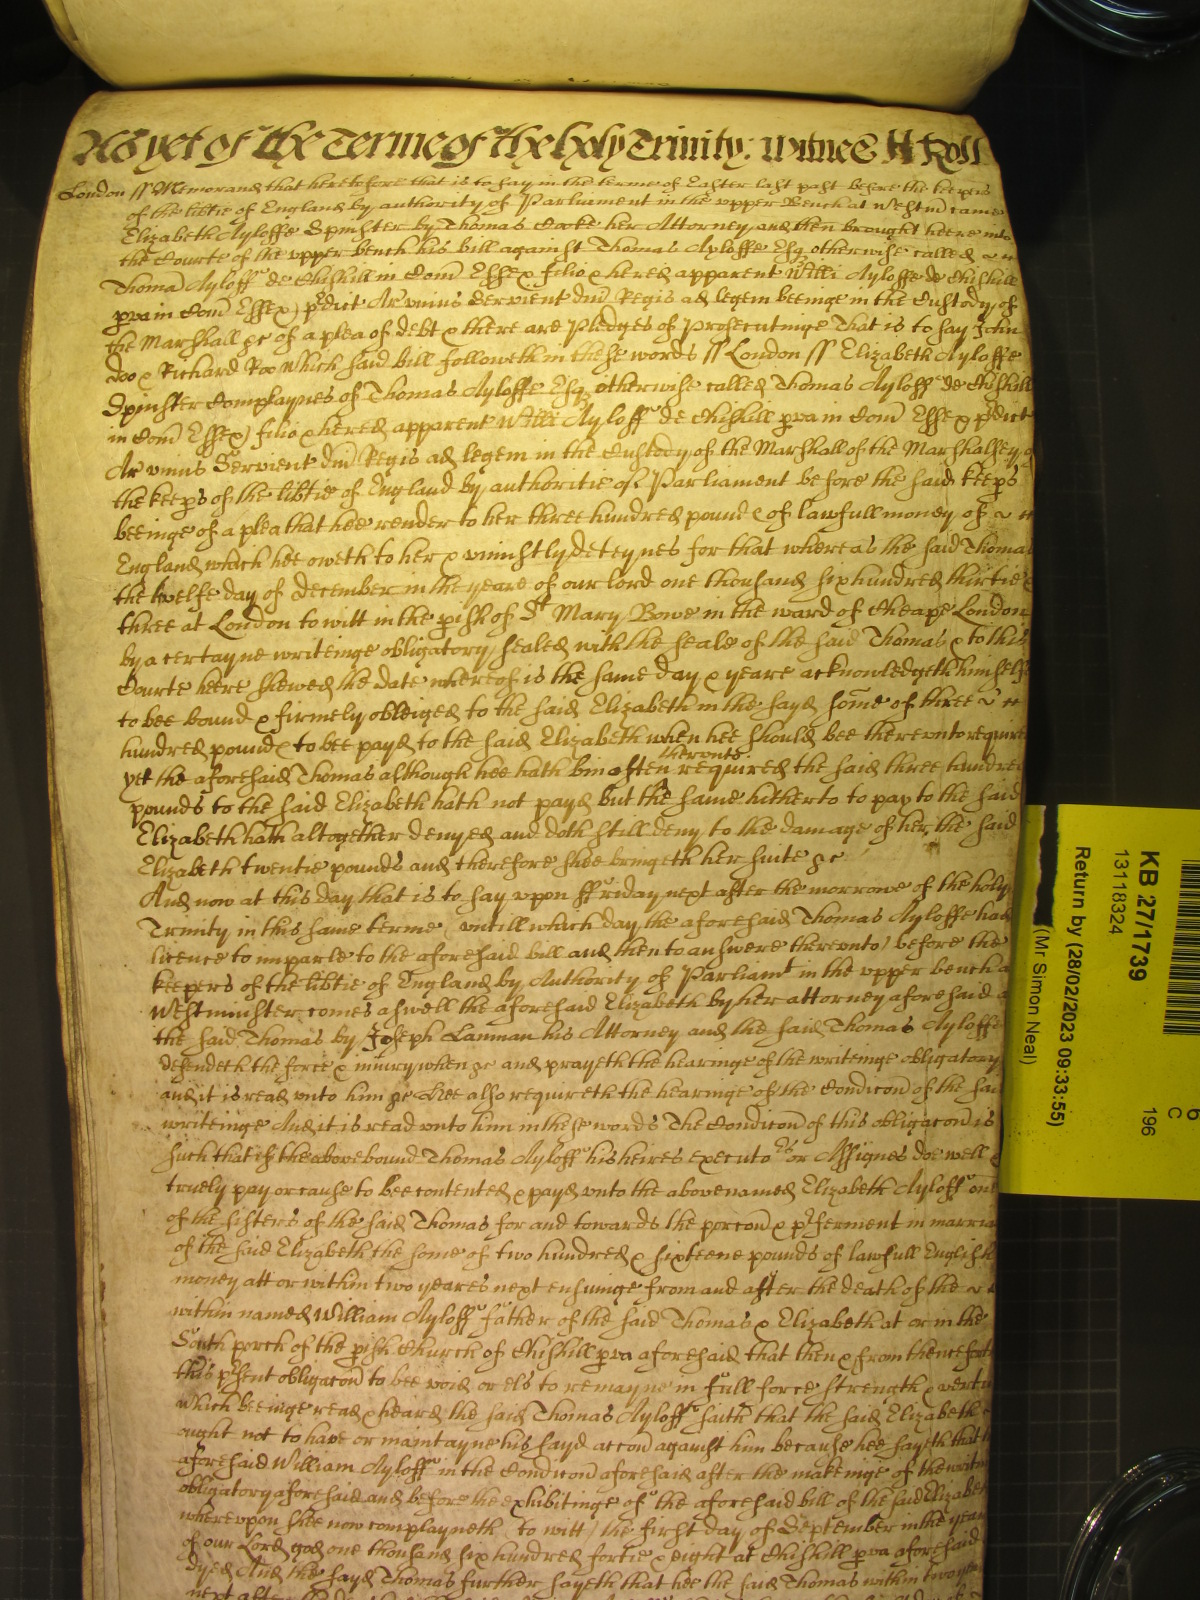 As yet of the Terme of the holy Trinity: Witnes H Roll
London ss Memorand that heretofore that is to say in the terme of Easter last past before the keepers
of the libtie of England by authority of Parliament in the upper Bench at Westm came
Elizabeth Ayloffe Spinster by Thomas Cocke her Attorney and then brought heere into
the Courte of the upper bench his bill against Thomas Ayloffe Esq otherwise called
Thoma Ayloff de Chishill in Com Essex filio & hered apparent Willi Ayloffe de Chishill
pva in Com Essex) pdict Ar unius Servient dni Regis ad legem beeinge in the Custody of
the Marshall &c of a plea of debt & there are Pledges of Prosecutinge That is to say John
Doo & Richard Roo Which said bill followeth in these words ss London ss Elizabeth Ayloffe
Spinster Complaynes of Thomas Ayloffe Esq otherwise called Thomas Ayloff de Chishill
in Com Essex) filio & hered apparent Willi Ayloff de Chishill pva in Com Essex pdict
Ar unius Servient dni Regis ad legem in the Custody of the Marshall of the Marshalsey
the keeps of the libtie of England by authoritie of Parliament before the said keeps
beeinge of a plea that hee render to her three hundred pound of lawfull money of
England which hee oweth to her & uniustly deteynes for that whereas the said Thomas
the twelfe day of December in the yeare of our lord one thousand six hundred thirtie &
three at London to witt in the pish of St Mary Bowe in the ward of Cheape London
by a certayne writeinge obligatory sealed with the seale of the said Thomas & to this
Courte heere shewed the date whereof is the same day & yeare acknowledgeth himselfe
to bee bound & firmely obleiged to the said Elizabeth in the sayd some of three
hundred pound to bee payd to the said Elizabeth when hee should bee thereunto require
yet the aforesaid Thomas although hee hath bin often thereunto required the said three hundred
pounds to the said Elizabeth hath not payd but the same hitherto to pay to the said
Elizabeth hath altogether denyed and doth still deny to the damage of her the said
Elizabeth twentie pounds and therefore shee bringeth her suite &c
And now at this day that is to say uppon ffriday next after the morrowe of the holy
Trinity in this same terme (untill which day the aforesaid Thomas Ayloffe had
licence to imparle to the aforesaid bill and then to answere thereunto) before the
keepers of the libtie of England by Authority of Parliamt in the upper bench a
Westminster comes aswell the aforesaid Elizabeth by her attorney aforesaid a
the said Thomas by Joseph Lanman his Attorney and the said Thomas Ayloffe
defendeth the force & iniury when &c and prayeth the hearinge of the writeinge obligatory
and it is read unto him &c Hee also requireth the hearinge of the Condicon of the said
writeinge And it is read unto him in these words The Condicon of this obligacon is
such that if the above bound Thomas Ayloff his heires executors or Assignes doe well &
truely pay or cause to bee contented & payd unto the above named Elizabeth Ayloff one
of the sisters of the said Thomas for and towards the porcon & pferment in marria
of the said Elizabeth the some of two hundred & sixteene pounds of lawfull English
money att or within two yeares next ensuinge from and after the death of the
within named William Ayloff father of the said Thomas & Elizabeth at or in the
South porch of the pish Church of Chishill pva aforesaid that then & from thenceforth
this psent obligacon to bee void or els to remayne in full force strength & vertu
Which beeinge read & heard the said Thomas Ayloff saith that the said Elizabeth
ought not to have or mainteyne his sayd accon against him because hee sayeth that
aforesaid William Ayloff in the Condicon aforesaid after the makeinge of the writin
obligatory aforesaid and before the exhibitinge of the aforesaid bill of the said Elizabet
whereuppon shee now complayneth (to witt) the first day of September in the year
of our Lord god one thousand six hundred fortie & eight at Chishill pva aforesaid
dyed And the sayd Thomas further sayeth that hee the said Thomas within two yeares
next after
KB 27/1739
13118324
Return by (28/02/2023 09:33:55)
(Mr Simon Neal)
C
196